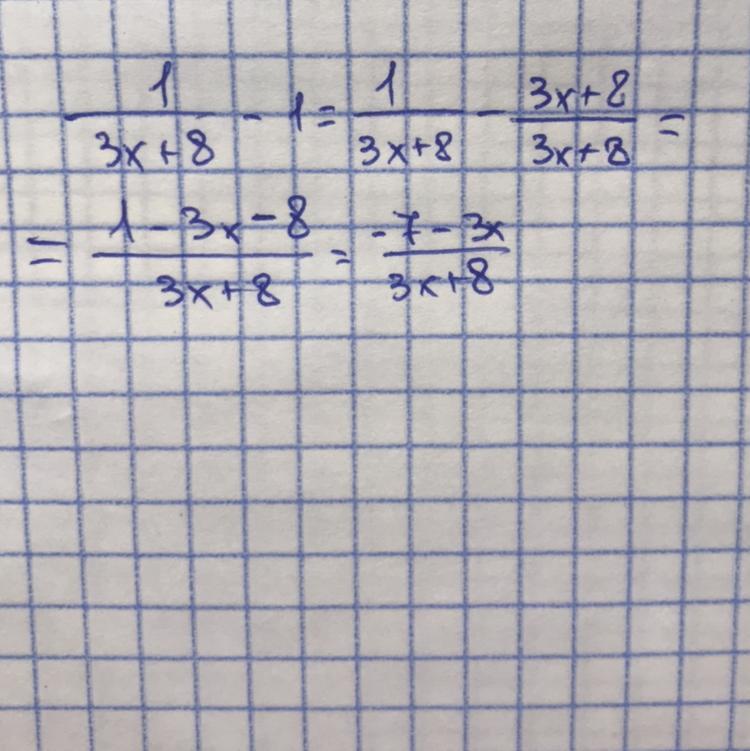 1/(3x+8) - 1 = 1/(3x+8) - (3x+8)/(3x+8) =
= (1-3x-8)/(3x+8) = (-7-3x)/(3x+8)